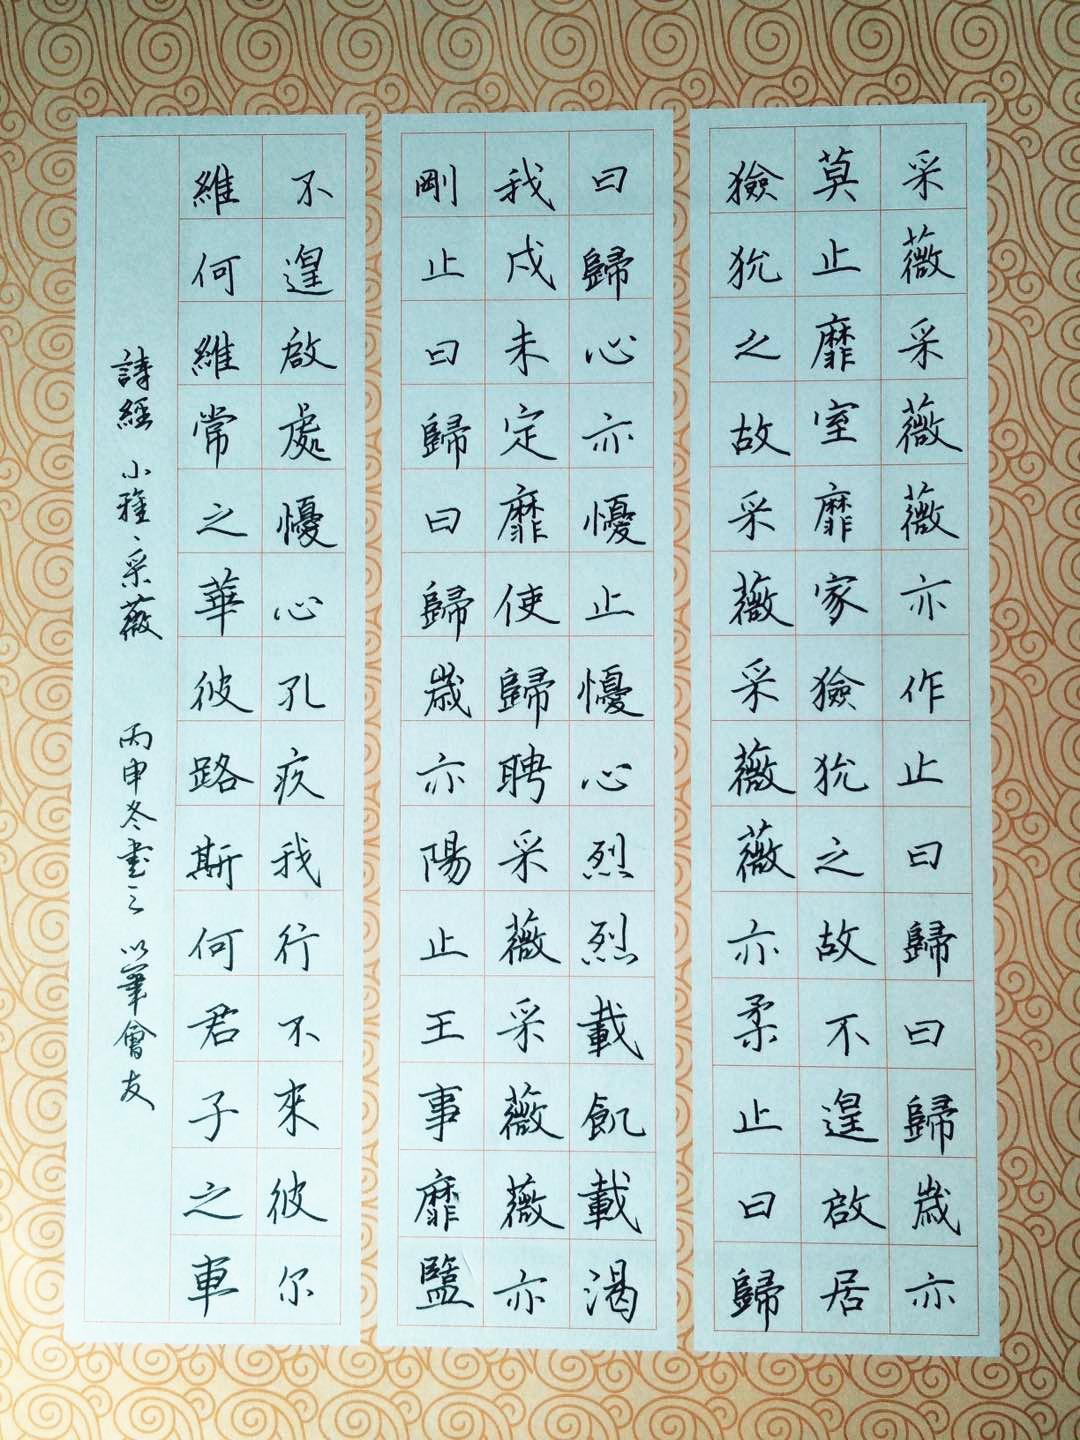 采薇采薇薇亦作止曰歸曰歸歲亦
莫止靡室靡家獫狁之故不遑啟居
獫狁之故采薇采薇薇亦柔止曰歸
曰歸心亦懮止懮心烈烈載飢載渴
我戍未定靡使歸聘采薇采薇薇亦
剛止曰歸曰歸歲亦陽止王事靡盬
不遑啟處懮心孔疚我行不來彼尔
維何維常之華彼路斯何君子之車
詩經 小雅·采薇 丙申冬書之 以筆會友